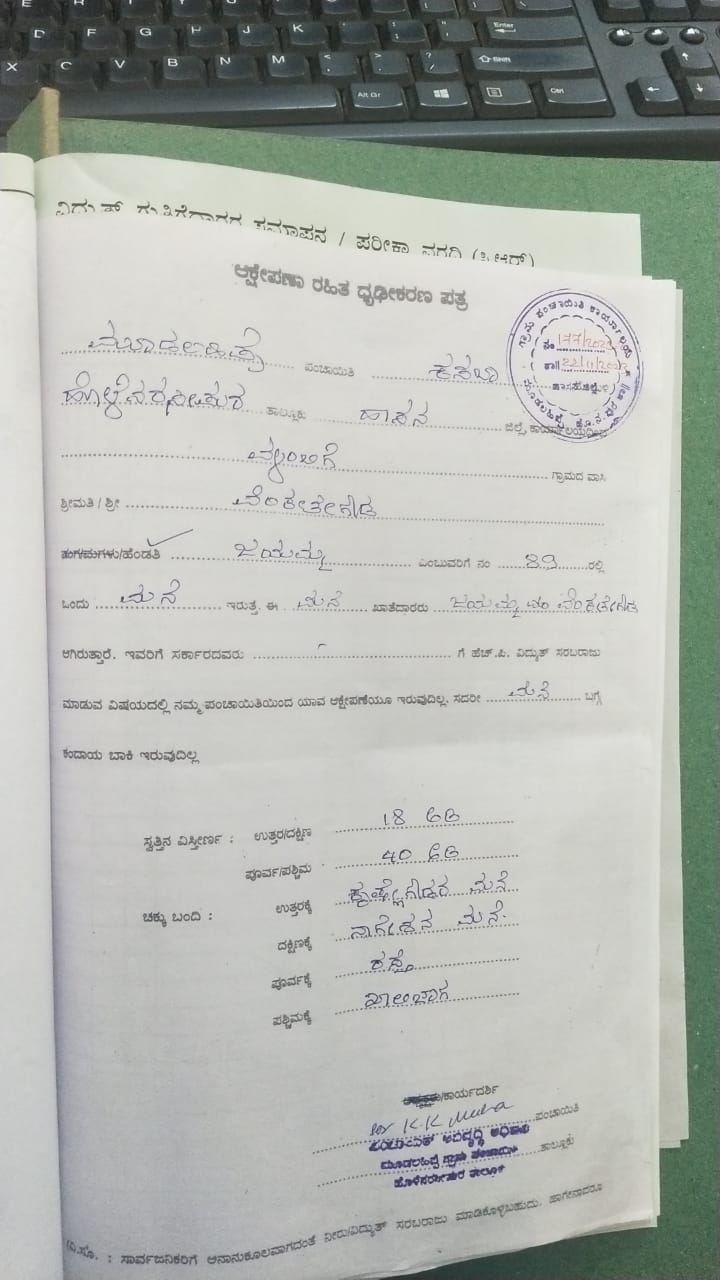 ವಿದ್ಯುತ್ ಗುತ್ತಿಗೆದಾರರ ಸಮಾಪನ / ಪರೀಕ್ಷಾ ವರದಿ (ಸಿ.ಆರ್)
ಆಕ್ಷೇಪಣಾ ರಹಿತ ಧೃಢೀಕರಣ ಪತ್ರ
ಮೂಡಲಹಿಪ್ಪೆ ಪಂಚಾಯಿತಿ ಕಸಬಾ
ಹೊಳೆನರಸೀಪುರ ತಾಲ್ಲೂಕು ಹಾಸನ ಜಿಲ್ಲೆ, ಕಾರ್ಯಾಲಯದಿಂದ
ಗ್ರಾಮ ಪಂಚಾಯಿತಿ ಕಾರ್ಯಾಲಯ
ನಂ 177/202
ದಿ|| 22/11/202
ಮೂಡಲಹಿಪ್ಪೆ, ಹೊ.ನ.ಪುರ ತಾ||
ಗ್ರಾಮದ ವಾಸಿ
ಶ್ರೀಮತಿ / ಶ್ರೀ ವೆಂಕಟೇಗೌಡ
ಮಗ/ಮಗಳು/ಹೆಂಡತಿ ಜಯಮ್ಮ ಎಂಬುವರಿಗೆ ನಂ 89 ರಲ್ಲಿ
ಒಂದು ಮನೆ ಇರುತ್ತೆ. ಈ ಮನೆ ಖಾತೆದಾರರು ಜಯಮ್ಮ ಕೋಂ ವೆಂಕಟೇಗೌಡ
ಆಗಿರುತ್ತಾರೆ. ಇವರಿಗೆ ಸರ್ಕಾರದವರು - ಗೆ ಹೆಚ್.ಪಿ. ವಿದ್ಯುತ್ ಸರಬರಾಜು
ಮಾಡುವ ವಿಷಯದಲ್ಲಿ ನಮ್ಮ ಪಂಚಾಯಿತಿಯಿಂದ ಯಾವ ಆಕ್ಷೇಪಣೆಯೂ ಇರುವುದಿಲ್ಲ. ಸದರೀ ಮನೆ ಬಗ್ಗೆ
ಕಂದಾಯ ಬಾಕಿ ಇರುವುದಿಲ್ಲ
ಸ್ವತ್ತಿನ ವಿಸ್ತೀರ್ಣ : ಉತ್ತರ/ದಕ್ಷಿಣ 18 ಅಡಿ
ಪೂರ್ವ/ಪಶ್ಚಿಮ 40 ಅಡಿ
ಚಕ್ಕು ಬಂದಿ : ಉತ್ತರಕ್ಕೆ ಕೃಷ್ಣೇಗೌಡರ ಮನೆ
ದಕ್ಷಿಣಕ್ಕೆ ನಾಗೇಶನ ಮನೆ.
ಪೂರ್ವಕ್ಕೆ ರಸ್ತೆ
ಪಶ್ಚಿಮಕ್ಕೆ ಖಾಲಿಜಾಗ
ಅಧ್ಯಕ್ಷರು/ಕಾರ್ಯದರ್ಶಿ
ಪಂಚಾಯಿತಿ
ಪಂಚಾಯತ್ ಅಭಿವೃದ್ಧಿ ಅಧಿಕಾರಿ
ಮೂಡಲಹಿಪ್ಪೆ ಗ್ರಾಮ ಪಂಚಾಯಿತಿ ತಾಲ್ಲೂಕು
ಹೊಳೆನರಸೀಪುರ ತಾಲ್ಲೂಕು
ವಿ.ಸೂ. : ಸಾರ್ವಜನಿಕರಿಗೆ ಅನಾನುಕೂಲವಾಗದಂತೆ ನೀರು/ವಿದ್ಯುತ್ ಸರಬರಾಜು ಮಾಡಿಕೊಳ್ಳಬಹುದು. ಹಾಗೇನಾದರೂ